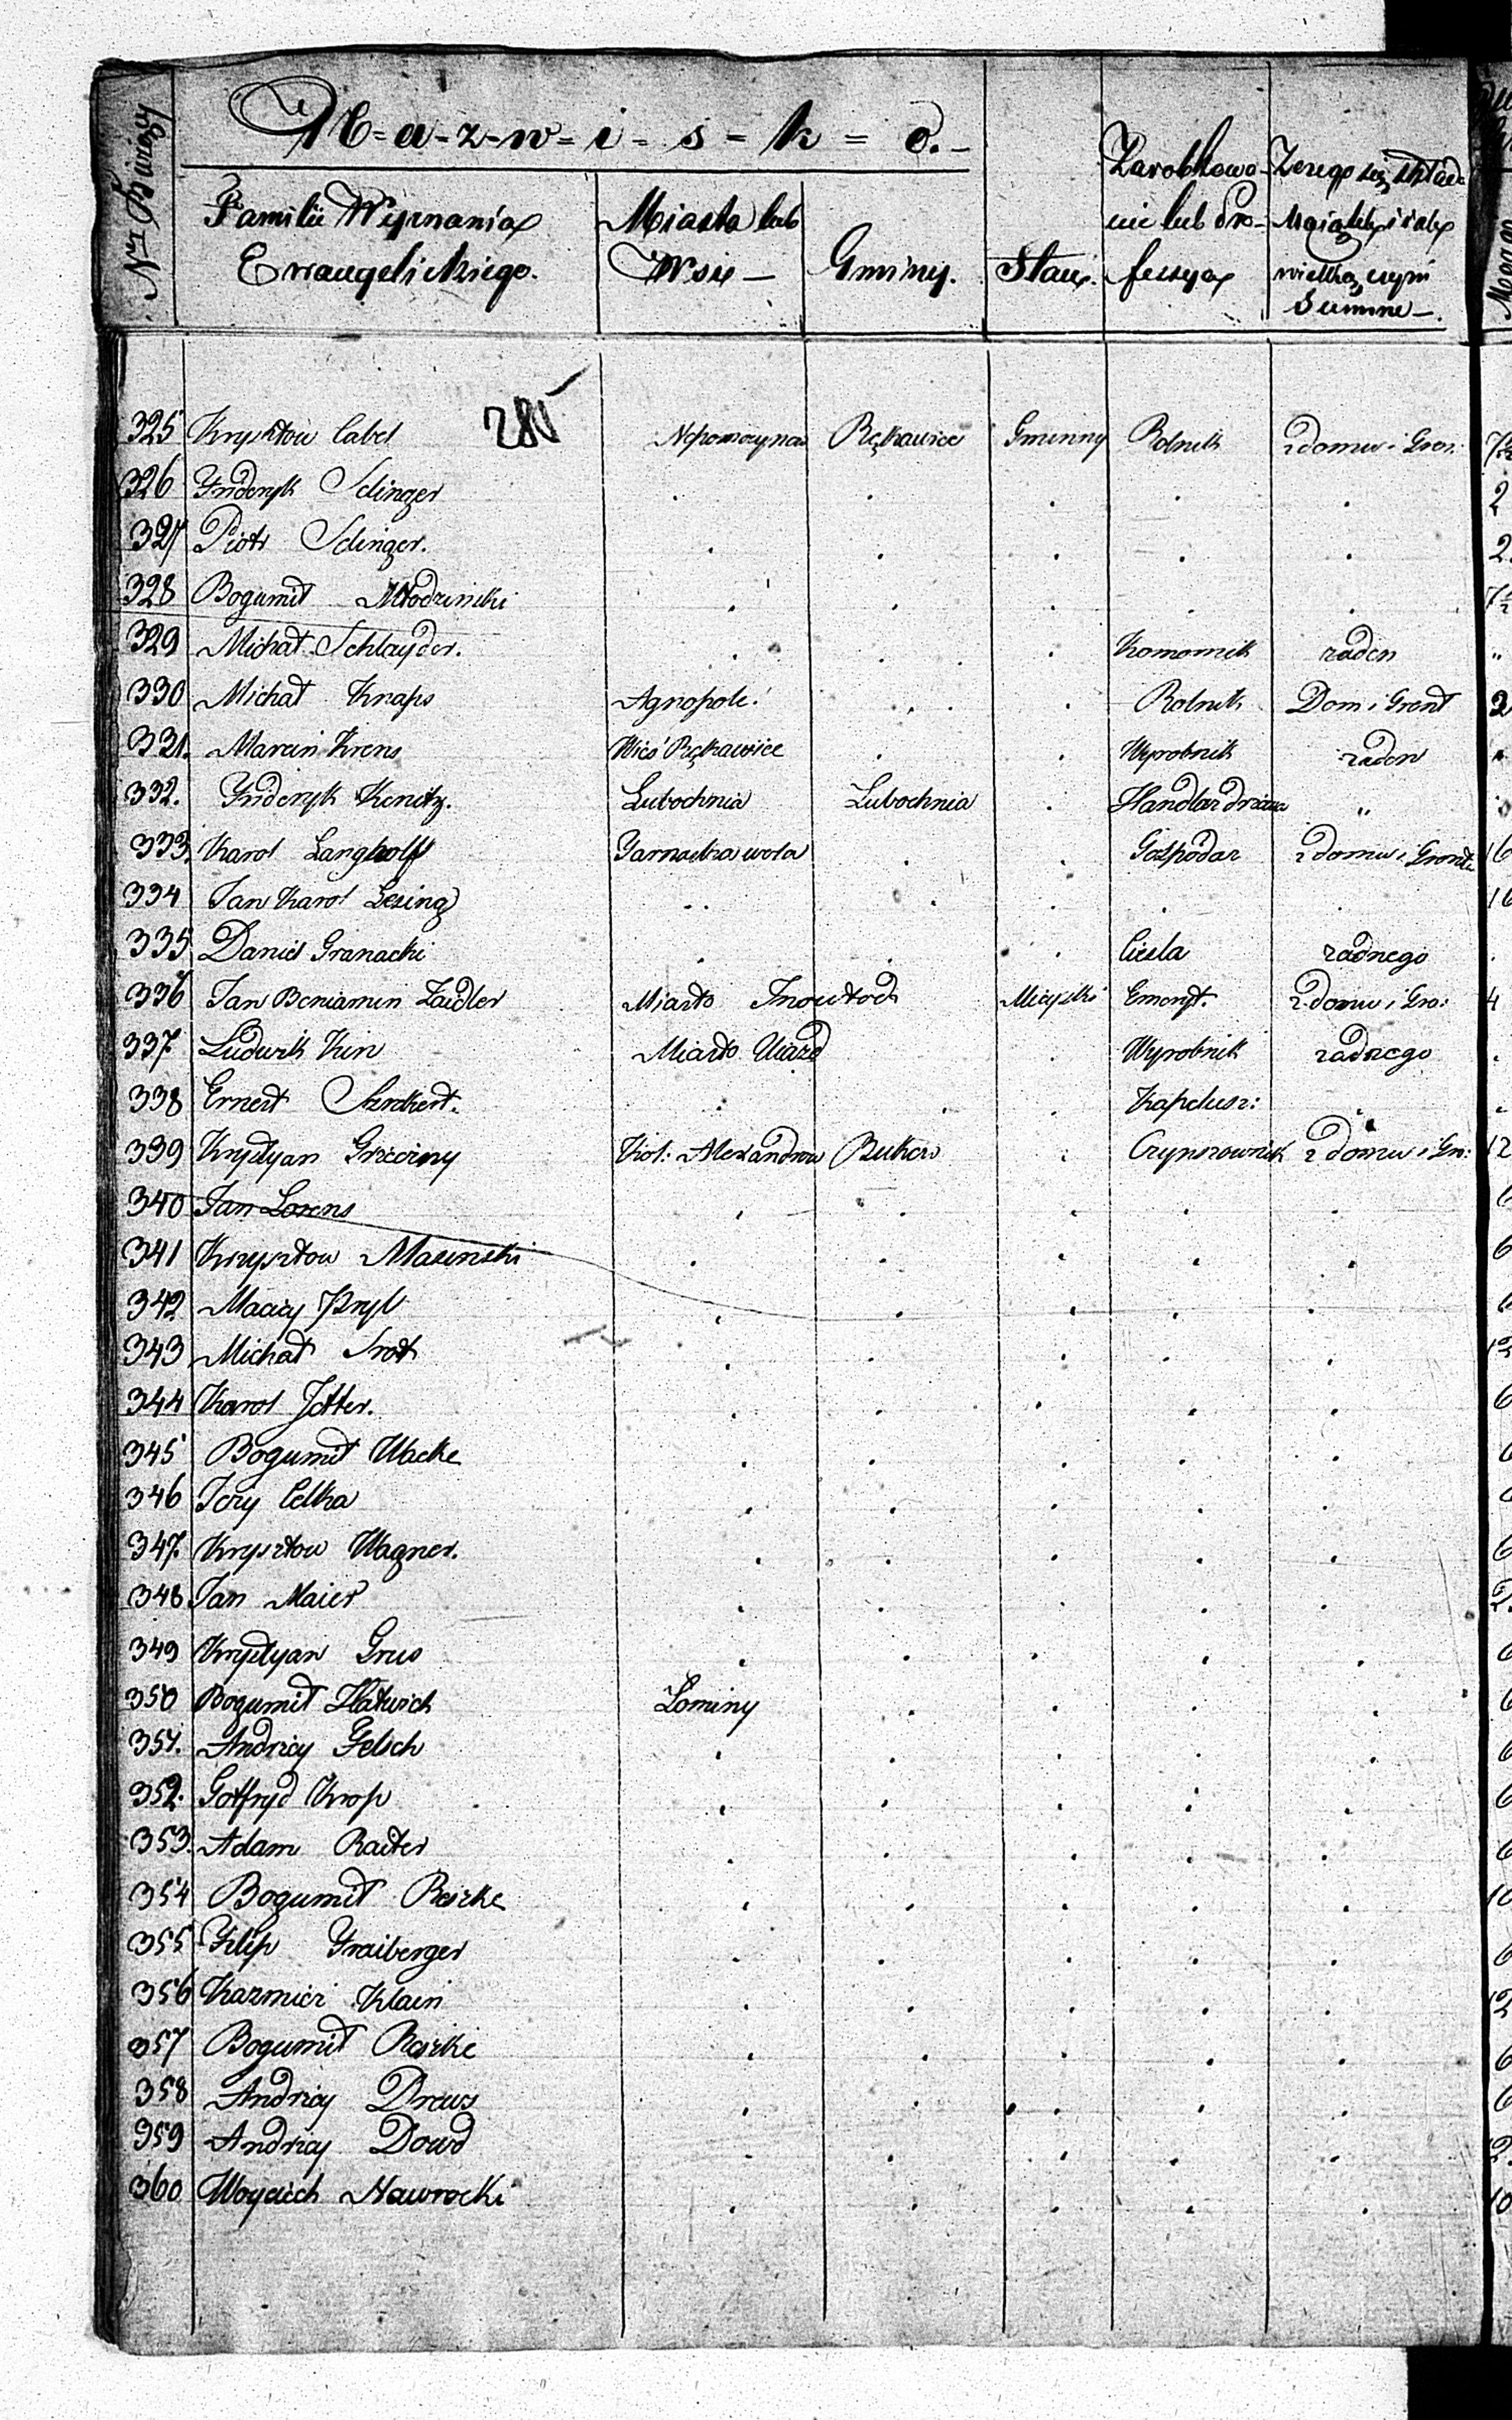 N-a-z-w-i-s-k-o.
Familii Wyznania Miasta lub Zarobkowa- Z czego się składa
nie lub Pro- Maiątek i iak
Ewangelickiego. Wsie Gminy. Stan. fessya wielką czyni
Summe
281
325 Krysztow Cabel Nepomucynow Rękawiec Gminny Rolnik z domu i Gron:
326 Fryderyk Selinger . . . . . 2
327 Piotr Selinger. . . . . . 2
328 Bogumił Młodzinski . . . . . 7½
329 Michał Schlayder. . . . Komornik żaden "
330 Michał Knaps Agnopole . . Rolnik Dom i Gront 2
331. Marcin Krens Wieś Rękawiec . . Wyrobnik żaden
332. Fryderyk Kenitz. Lubochnia Lubochnia . Handlarz drzewa "
333. Karol Langholff Jarnostka wola . . Gospodar z domu i Grontu 16
334 Jan Karol Lesing . . . . . 16
335 Daniel Granacki . . . Ciesla żadnego .
336 Jan Beniamin Zaidler Miasto Inowłodz Mieyski Emeryt. z domu i Gro: 4
337. Ludwik Kin Miasto Uiazd . Wyrobnik żadnego .
338 Ernest . . . Kapelusz: .
339 Krystyan Grzeczny Kol: Alexandrow Bukow . Czynszownik z domu i Gro: 12
340 Jan Lorens . . . . . 6
341 Krzysztow Masenski . . . . . 6
342 Maciey Pryl . . . . .
343 Michał Srot . . . . . 12
344 Karol Jetter. . . . . . 6
345 Bogumił Wacke . . . . . 6
346 Jerzy Celka . . . . .
347. Krysztow Wagner. . . . . . 6
348 Jan Maier . . . . . 2
349 Krystyan Grus . . . . . 6
350 Bogumił Hatwich Lominy . . . . 6
351. Andrzey Gelsch . . . . . 6
352. Gotfryd Krop . . . . . 6
353. Adam Raiter . . . . . 6
354 Bogumił Reszke . . . . . 10
355 Filip Fraiberger . . . . . 6
356 Kazmierz Klain . . . . . 12
357 Bogumił Raszke . . . . . 6
358 Andrzey Drews . . . . . 6
359 Andrzey Dowd . . . . . 12
360 Woyciech Nawrocki . . . . . 10